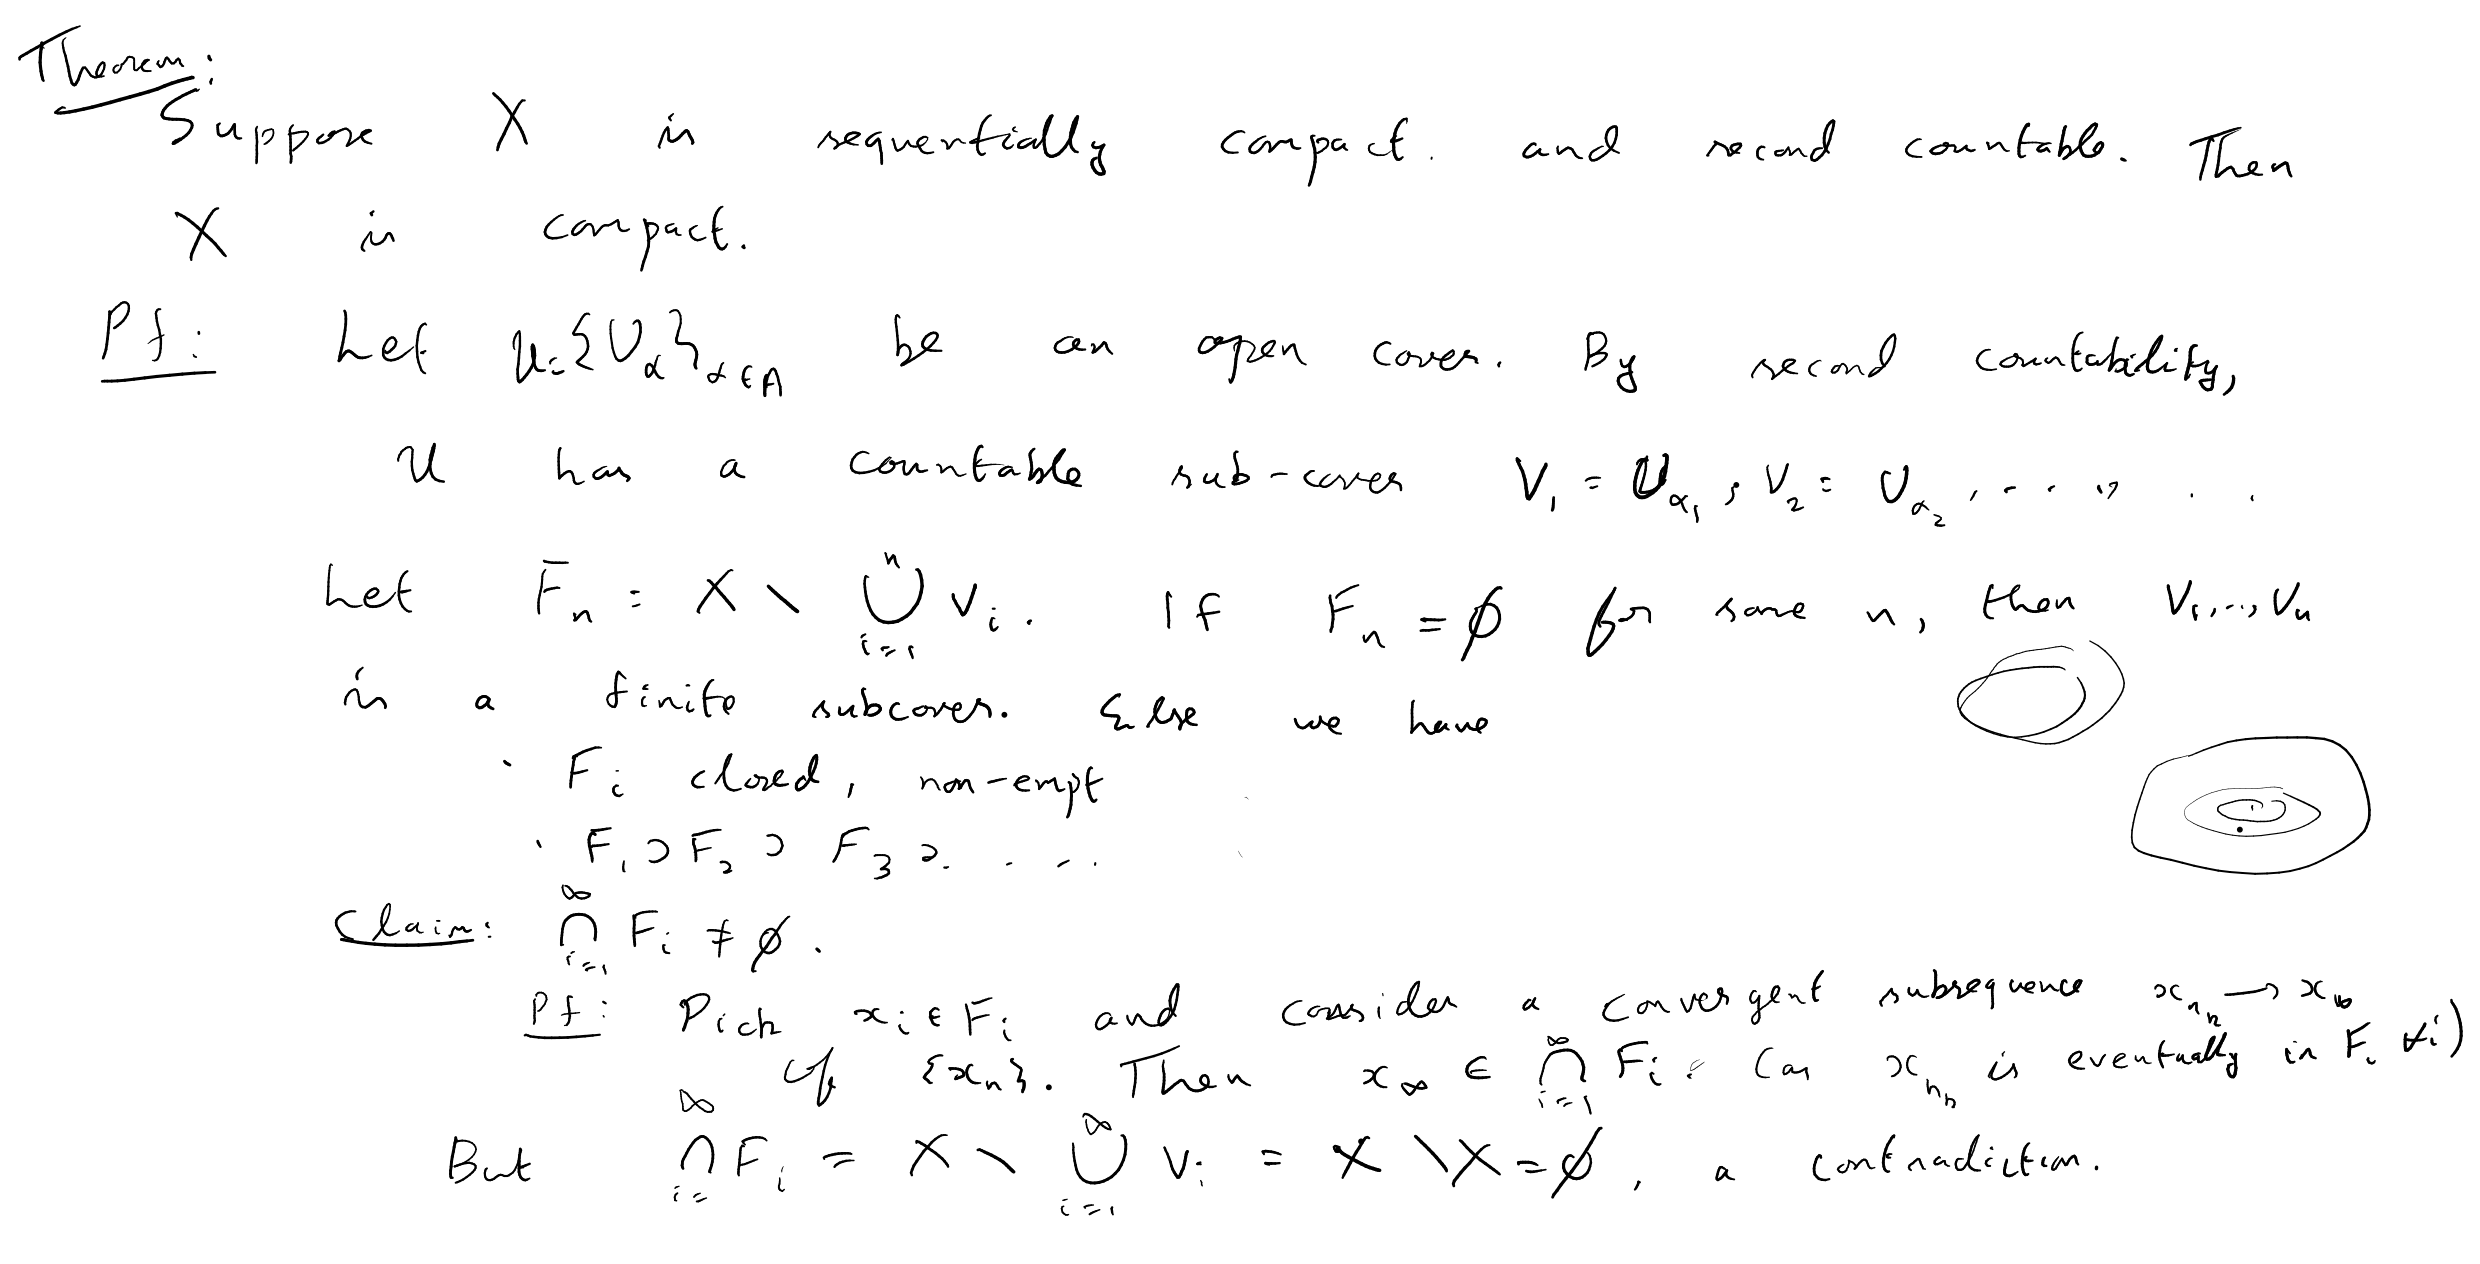 Theorem:
Suppose X is sequentially compact. and second countable. Then
X is compact.
Pf: Let 𝒰={U_α}_{α∈A} be an open cover. By second countability,
𝒰 has a countable sub-cover V_1 = U_{α_1}, V_2 = U_{α_2}, ....,, . .
Let F_n = X \ ⋃_{i=1}^{n} V_i. If F_n = ∅ for some n, then V_1,..., V_n
is a finite subcover. Else we have
· F_i closed, non-empt
· F_1 ⊃ F_2 ⊃ F_3 ⊃. ...
Claim: ⋂_{i=1}^{∞} F_i ≠ ∅.
Pf: Pick x_i ∈ F_i and consider a convergent subsequence x_{n_k} → x_∞
of {x_n}. Then x_∞ ∈ ⋂_{i=1}^{∞} F_i. (as x_{n_k} is eventually in F_i ∀i)
But ⋂_{i=}^{∞} F_i = X \ ⋃_{i=1}^{∞} V_i = X \ X = ∅, a contradiction.